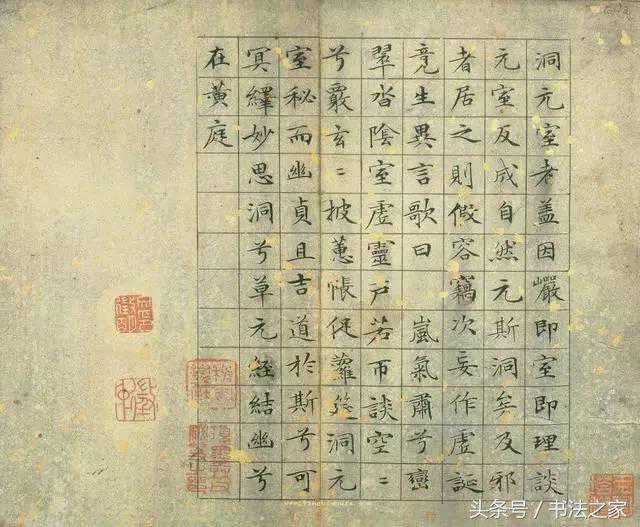 洞元室者盖因巖即室即理談
元室反成自然元斯洞矣及邪
者居之則假容竊次妄作虛誕
竟生異言歌曰 嵐氣肅兮巒
翠沓陰室虛靈戶若帀談空〻
兮覈玄〻披蕙帳促蘿筵洞元
室秘而幽貞且吉道於斯兮可
冥繹妙思洞兮草元經結幽兮
在黃庭
头条号 / 书法之家